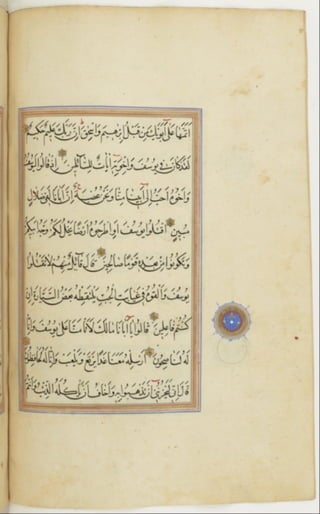 اَتَمَّهَا عَلٰٓى اَبَوَيْكَ مِنْ قَبْلُ اِبْرٰهِيمَ وَاِسْحٰقَ اِنَّ رَبَّكَ عَلِيمٌ حَكِيمٌ
لَقَدْ كَانَ فِي يُوسُفَ وَاِخْوَتِهٖٓ اٰيَاتٌ لِلسَّٓائِلِينَ اِذْ قَالُوا لَيُوسُفُ
وَاَخُوهُ اَحَبُّ اِلٰٓى اَبِينَا مِنَّا وَنَحْنُ عُصْبَةٌ اِنَّ اَبَانَا لَفِي ضَلَالٍ
مُبِينٍ اُقْتُلُوا يُوسُفَ اَوِ اطْرَحُوهُ اَرْضًا يَخْلُ لَكُمْ وَجْهُ اَبِيكُمْ
وَتَكُونُوا مِنْ بَعْدِهٖ قَوْمًا صَالِحِينَ قَالَ قَٓائِلٌ مِنْهُمْ لَا تَقْتُلُوا
يُوسُفَ وَاَلْقُوهُ فِي غَيَابَتِ الْجُبِّ يَلْتَقِطْهُ بَعْضُ السَّيَّارَةِ اِنْ
كُنْتُمْ فَاعِلِينَ قَالُوا يَٓا اَبَانَا مَالَكَ لَا تَأْمَنَّا عَلٰى يُوسُفَ وَاِنَّا
لَهُ لَنَاصِحُونَ اَرْسِلْهُ مَعَنَا غَدًا يَرْتَعْ وَيَلْعَبْ وَاِنَّا لَهُ لَحَافِظُونَ
قَالَ اِنِّي لَيَحْزُنُنِٓي اَنْ تَذْهَبُوا بِهٖ وَاَخَافُ اَنْ يَأْكُلَهُ الذِّئْبُ وَاَنْتُمْ